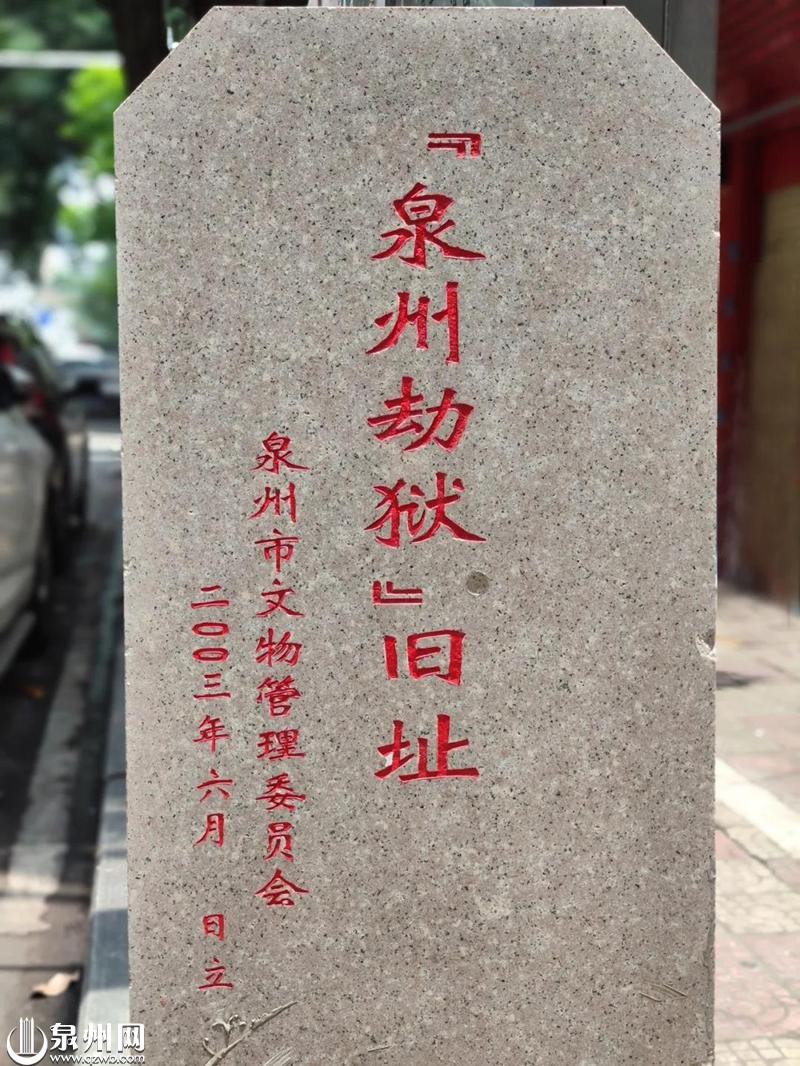 『泉州劫狱』旧址
泉州市文物管理委员会
二〇〇三年六月 日立
泉州网
www.qzwb.com